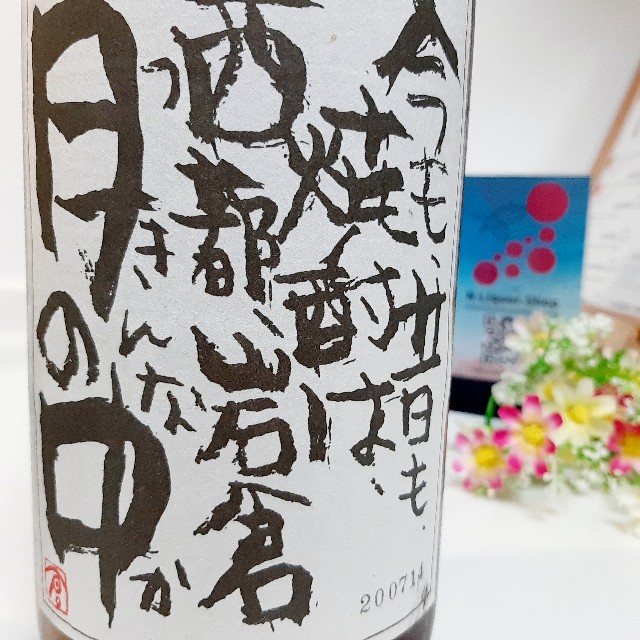 今も、昔も、
焼酎は、
西都岩倉
つきんなか
月の中
200714